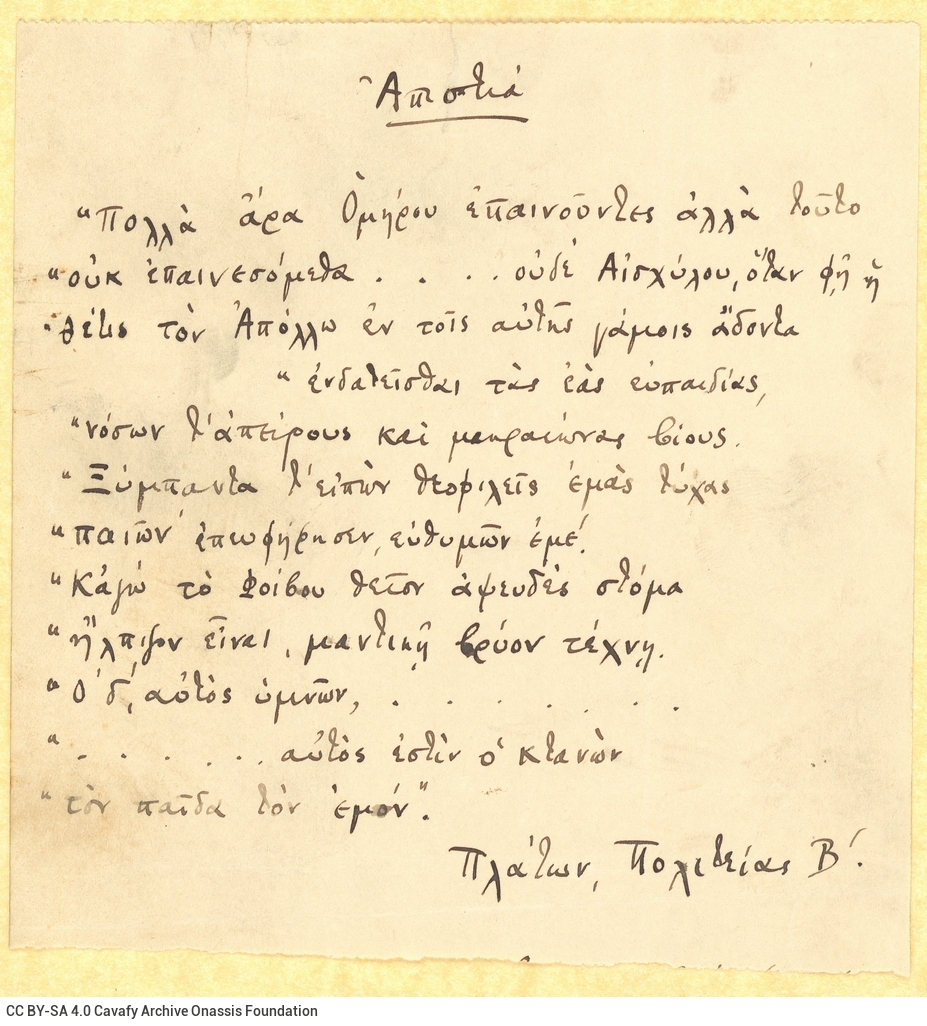 Ἀπιστία
"Πολλὰ ἄρα Ὁμήρου ἐπαινοῦντες ἀλλὰ τοῦτο
"οὐκ ἐπαινεσόμεθα . . . . οὐδὲ Αἰσχύλου, ὅταν φῇ ἡ
"Θέτις τὸν Ἀπόλλω ἐν τοῖς αὑτῆς γάμοις ᾄδοντα
"ἐνδατεῖσθαι τὰς ἑὰς εὐπαιδίας,
"νόσων τ' ἀπείρους καὶ μακραίωνας βίους.
"Ξύμπαντα τ' εἰπὼν θεοφιλεῖς ἐμὰς τύχας
"παιῶν' ἐπευφήμησεν, εὐθυμῶν ἐμέ.
"Κἀγὼ τὸ Φοίβου θεῖον ἀψευδὲς στόμα
"ἤλπιζον εἶναι, μαντικῇ βρύον τέχνῃ.
"Ὁ δ', αὐτὸς ὑμνῶν, . . . . . .
". . . . . . αὐτός ἐστὶν ὁ κτανὼν
"τὸν παῖδα τὸν ἐμόν".
Πλάτων, Πολιτείας Β΄.
CC BY-SA 4.0 Cavafy Archive Onassis Foundation